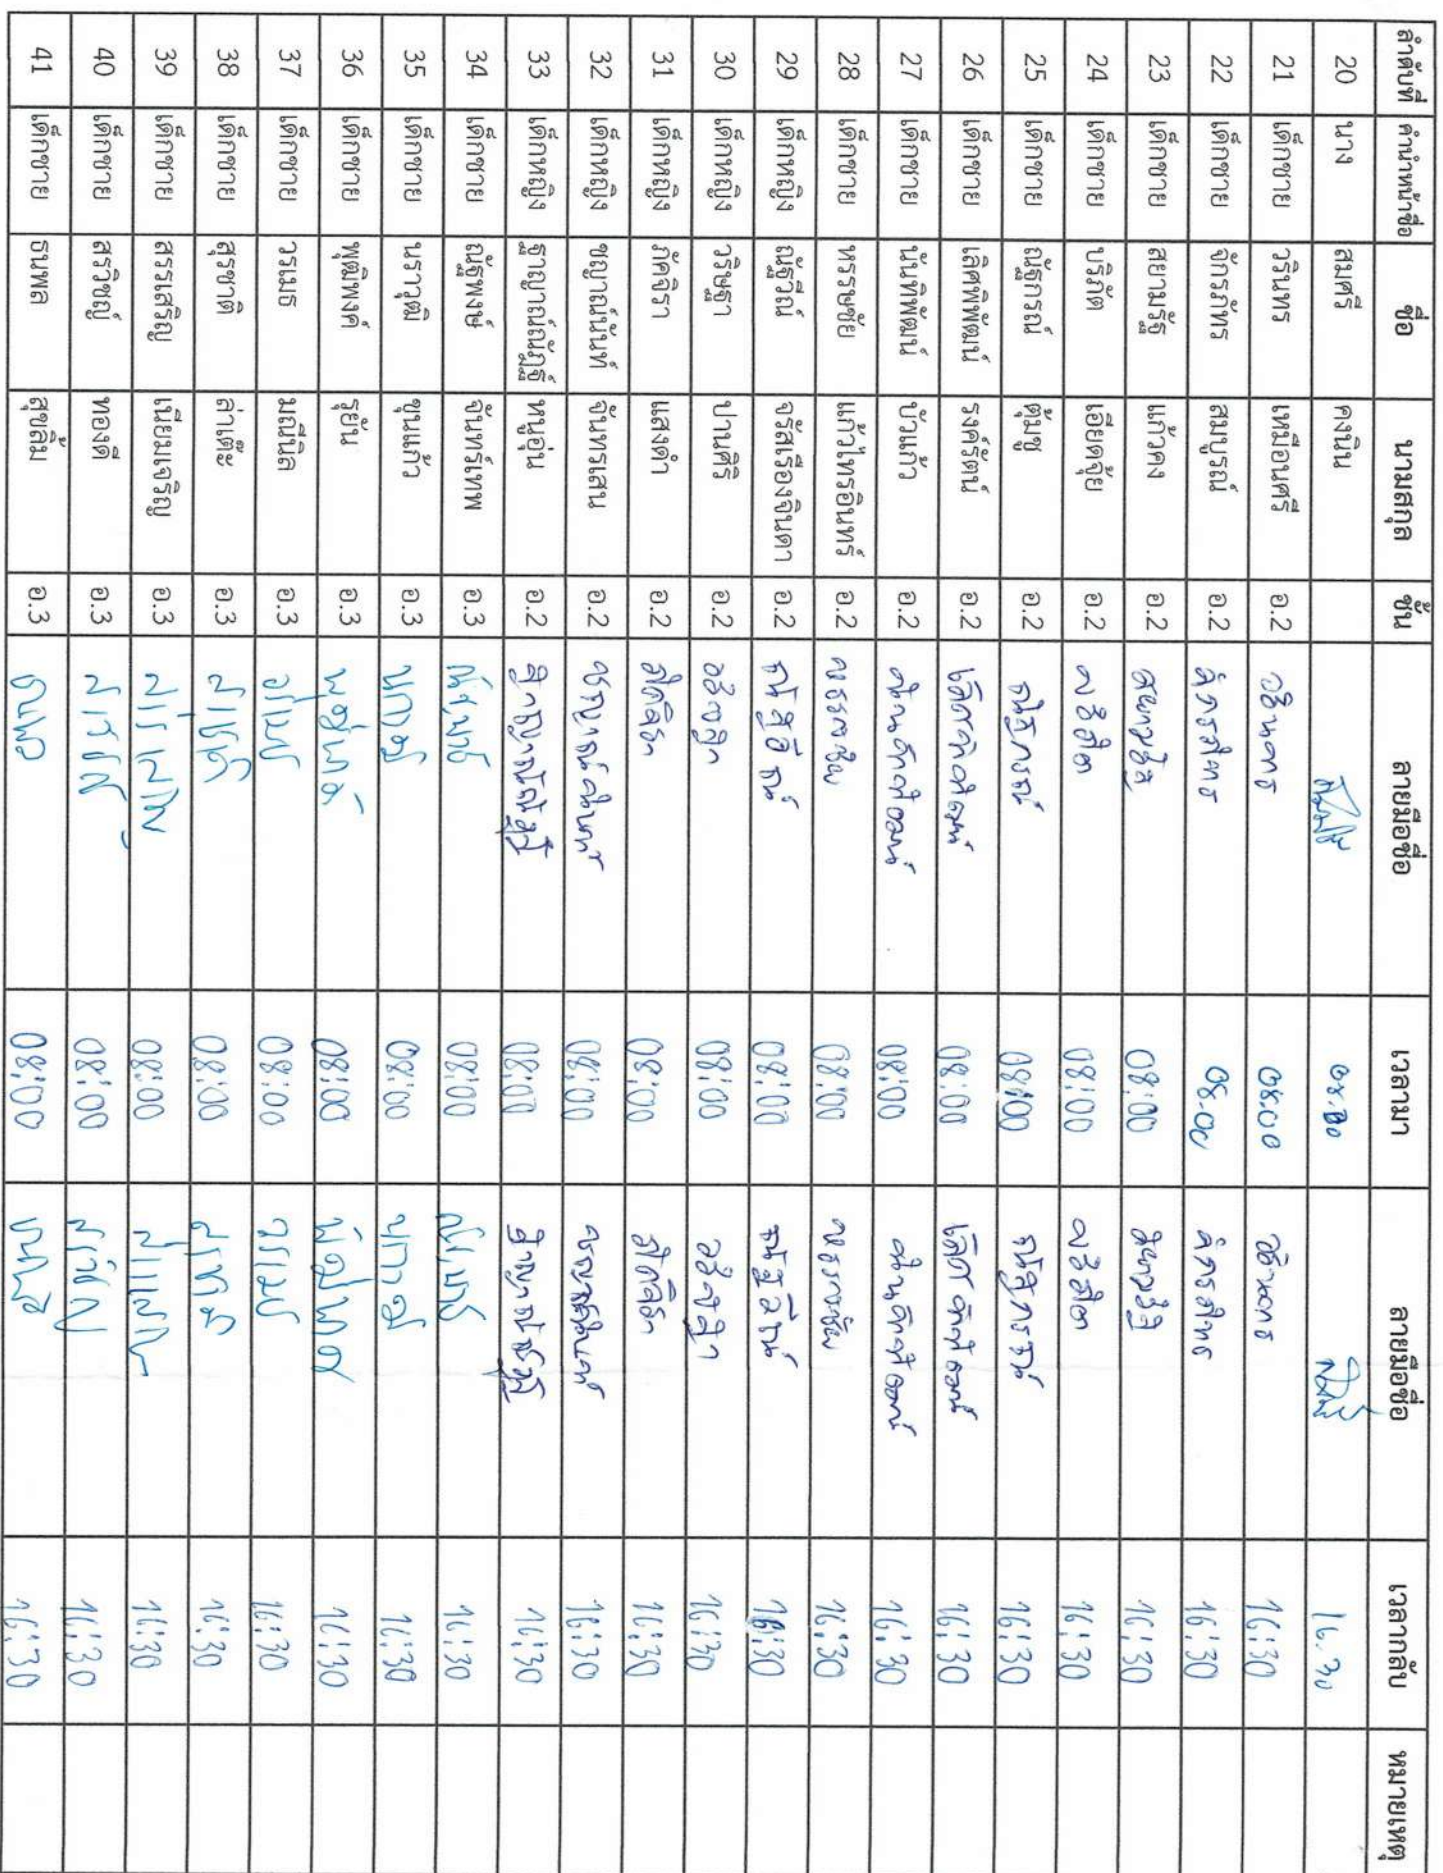 ลำดับที่ คำนำหน้าชื่อ ชื่อ นามสกุล ชั้น ลายมือชื่อ เวลามา ลายมือชื่อ เวลากลับ หมายเหตุ
20 นาง สมศรี คงนิน 08.00 16.30
21 เด็กชาย วรินทร เหมือนศรี อ.2 วรินทร 08.00 วรินทร 16:30
22 เด็กชาย จักรภัทร สมบูรณ์ อ.2 จักรภัทร 08.00 จักรภัทร 16:30
23 เด็กชาย สยามรัฐ แก้วคง อ.2 สยามรัฐ 08:00 สยามรัฐ 16:30
24 เด็กชาย บริภัต เอียดจุ้ย อ.2 บริภัต 08:00 บริภัต 16:30
25 เด็กชาย ณัฐกรณ์ ตุ้มชู อ.2 ณัฐกรณ์ 08:00 ณัฐกรณ์ 16:30
26 เด็กชาย เลิศพิพัฒน์ รงค์รัตน์ อ.2 เลิศพิพัฒน์ 08:00 เลิศพิพัฒน์ 16:30
27 เด็กชาย นันทิพัฒน์ บัวแก้ว อ.2 นันทิพัฒน์ 08:00 นันทิพัฒน์ 16:30
28 เด็กชาย หรรษชัย แก้วไทรอินทร์ อ.2 หรรษชัย 08:00 หรรษชัย 16:30
29 เด็กหญิง ณัฐวีณ์ จรัสเรืองจินดา อ.2 ณัฐวีณ์ 08:00 ณัฐวีณ์ 16:30
30 เด็กหญิง วริษฐา ปานศิริ อ.2 วริษฐา 08:00 วริษฐา 16:30
31 เด็กหญิง ภัคจิรา แสงดำ อ.2 ภัคจิรา 08:00 ภัคจิรา 16:30
32 เด็กหญิง ชญาณ์นันท์ จันทรเสน อ.2 ชญาณ์นันท์ 08:00 ชญาณ์นันท์ 16:30
33 เด็กหญิง ฐาญาณ์ณัฏฐ์ หนูอุ่น อ.2 08:00 16:30
34 เด็กชาย ณัฐพงษ์ จันทร์เทพ อ.3 08:00 16:30
35 เด็กชาย นราวุฒิ ขุนแก้ว อ.3 08:00 16:30
36 เด็กชาย พุฒิพงศ์ รุยัน อ.3 08:00 16:30
37 เด็กชาย วรเมธ มณีนิล อ.3 08:00 16:30
38 เด็กชาย สุรชาติ ล่าเต๊ะ อ.3 08:00 16:30
39 เด็กชาย สรรเสริญ เนียมเจริญ อ.3 08:00 16:30
40 เด็กชาย สรวิชญ์ ทองดี อ.3 08:00 16:30
41 เด็กชาย ธนพล สุขลิ้ม อ.3 08:00 16:30